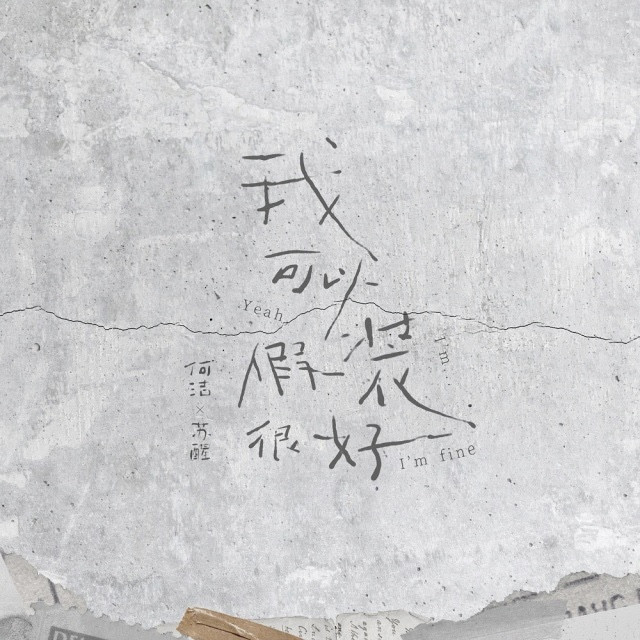 我
可以
Yeah
假装
I'm
很好
I'm fine
何洁×苏醒